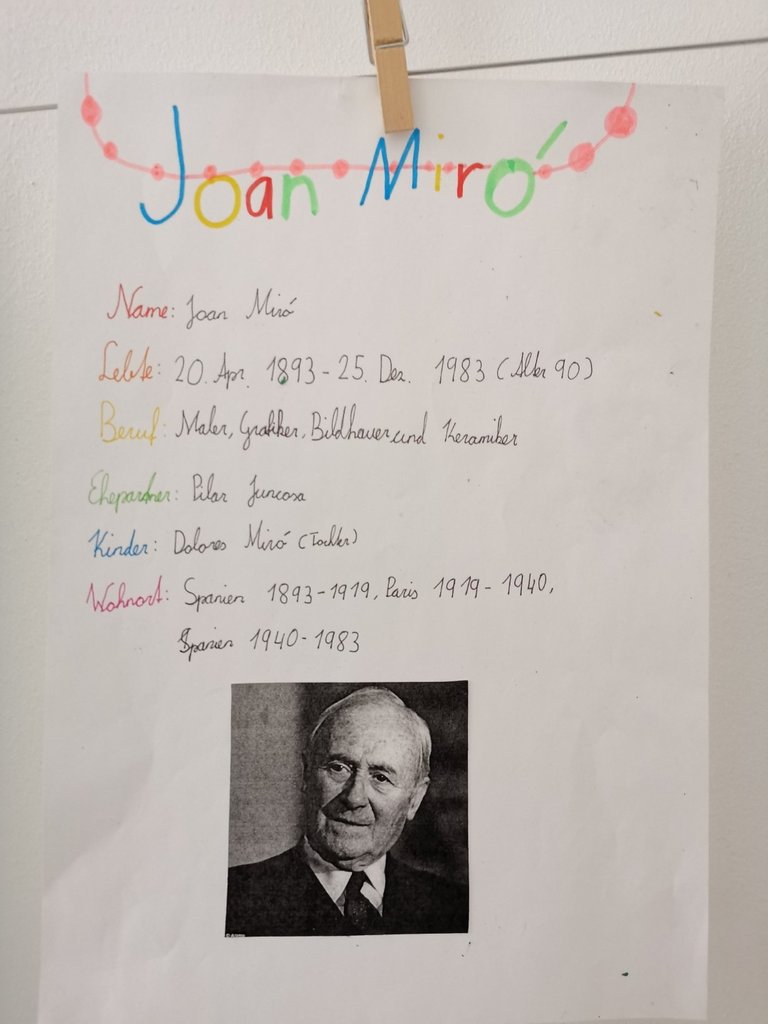 Joan Miró
Name: Joan Miró
Lebte: 20. Apr. 1893 - 25. Dez. 1983 (Alter 90)
Beruf: Maler, Grafiker, Bildhauer und Keramiker
Ehepartner: Pilar Juncosa
Kinder: Dolores Miró (Tochter)
Wohnort: Spanien 1893-1919, Paris 1919-1940,
Spanien 1940-1983